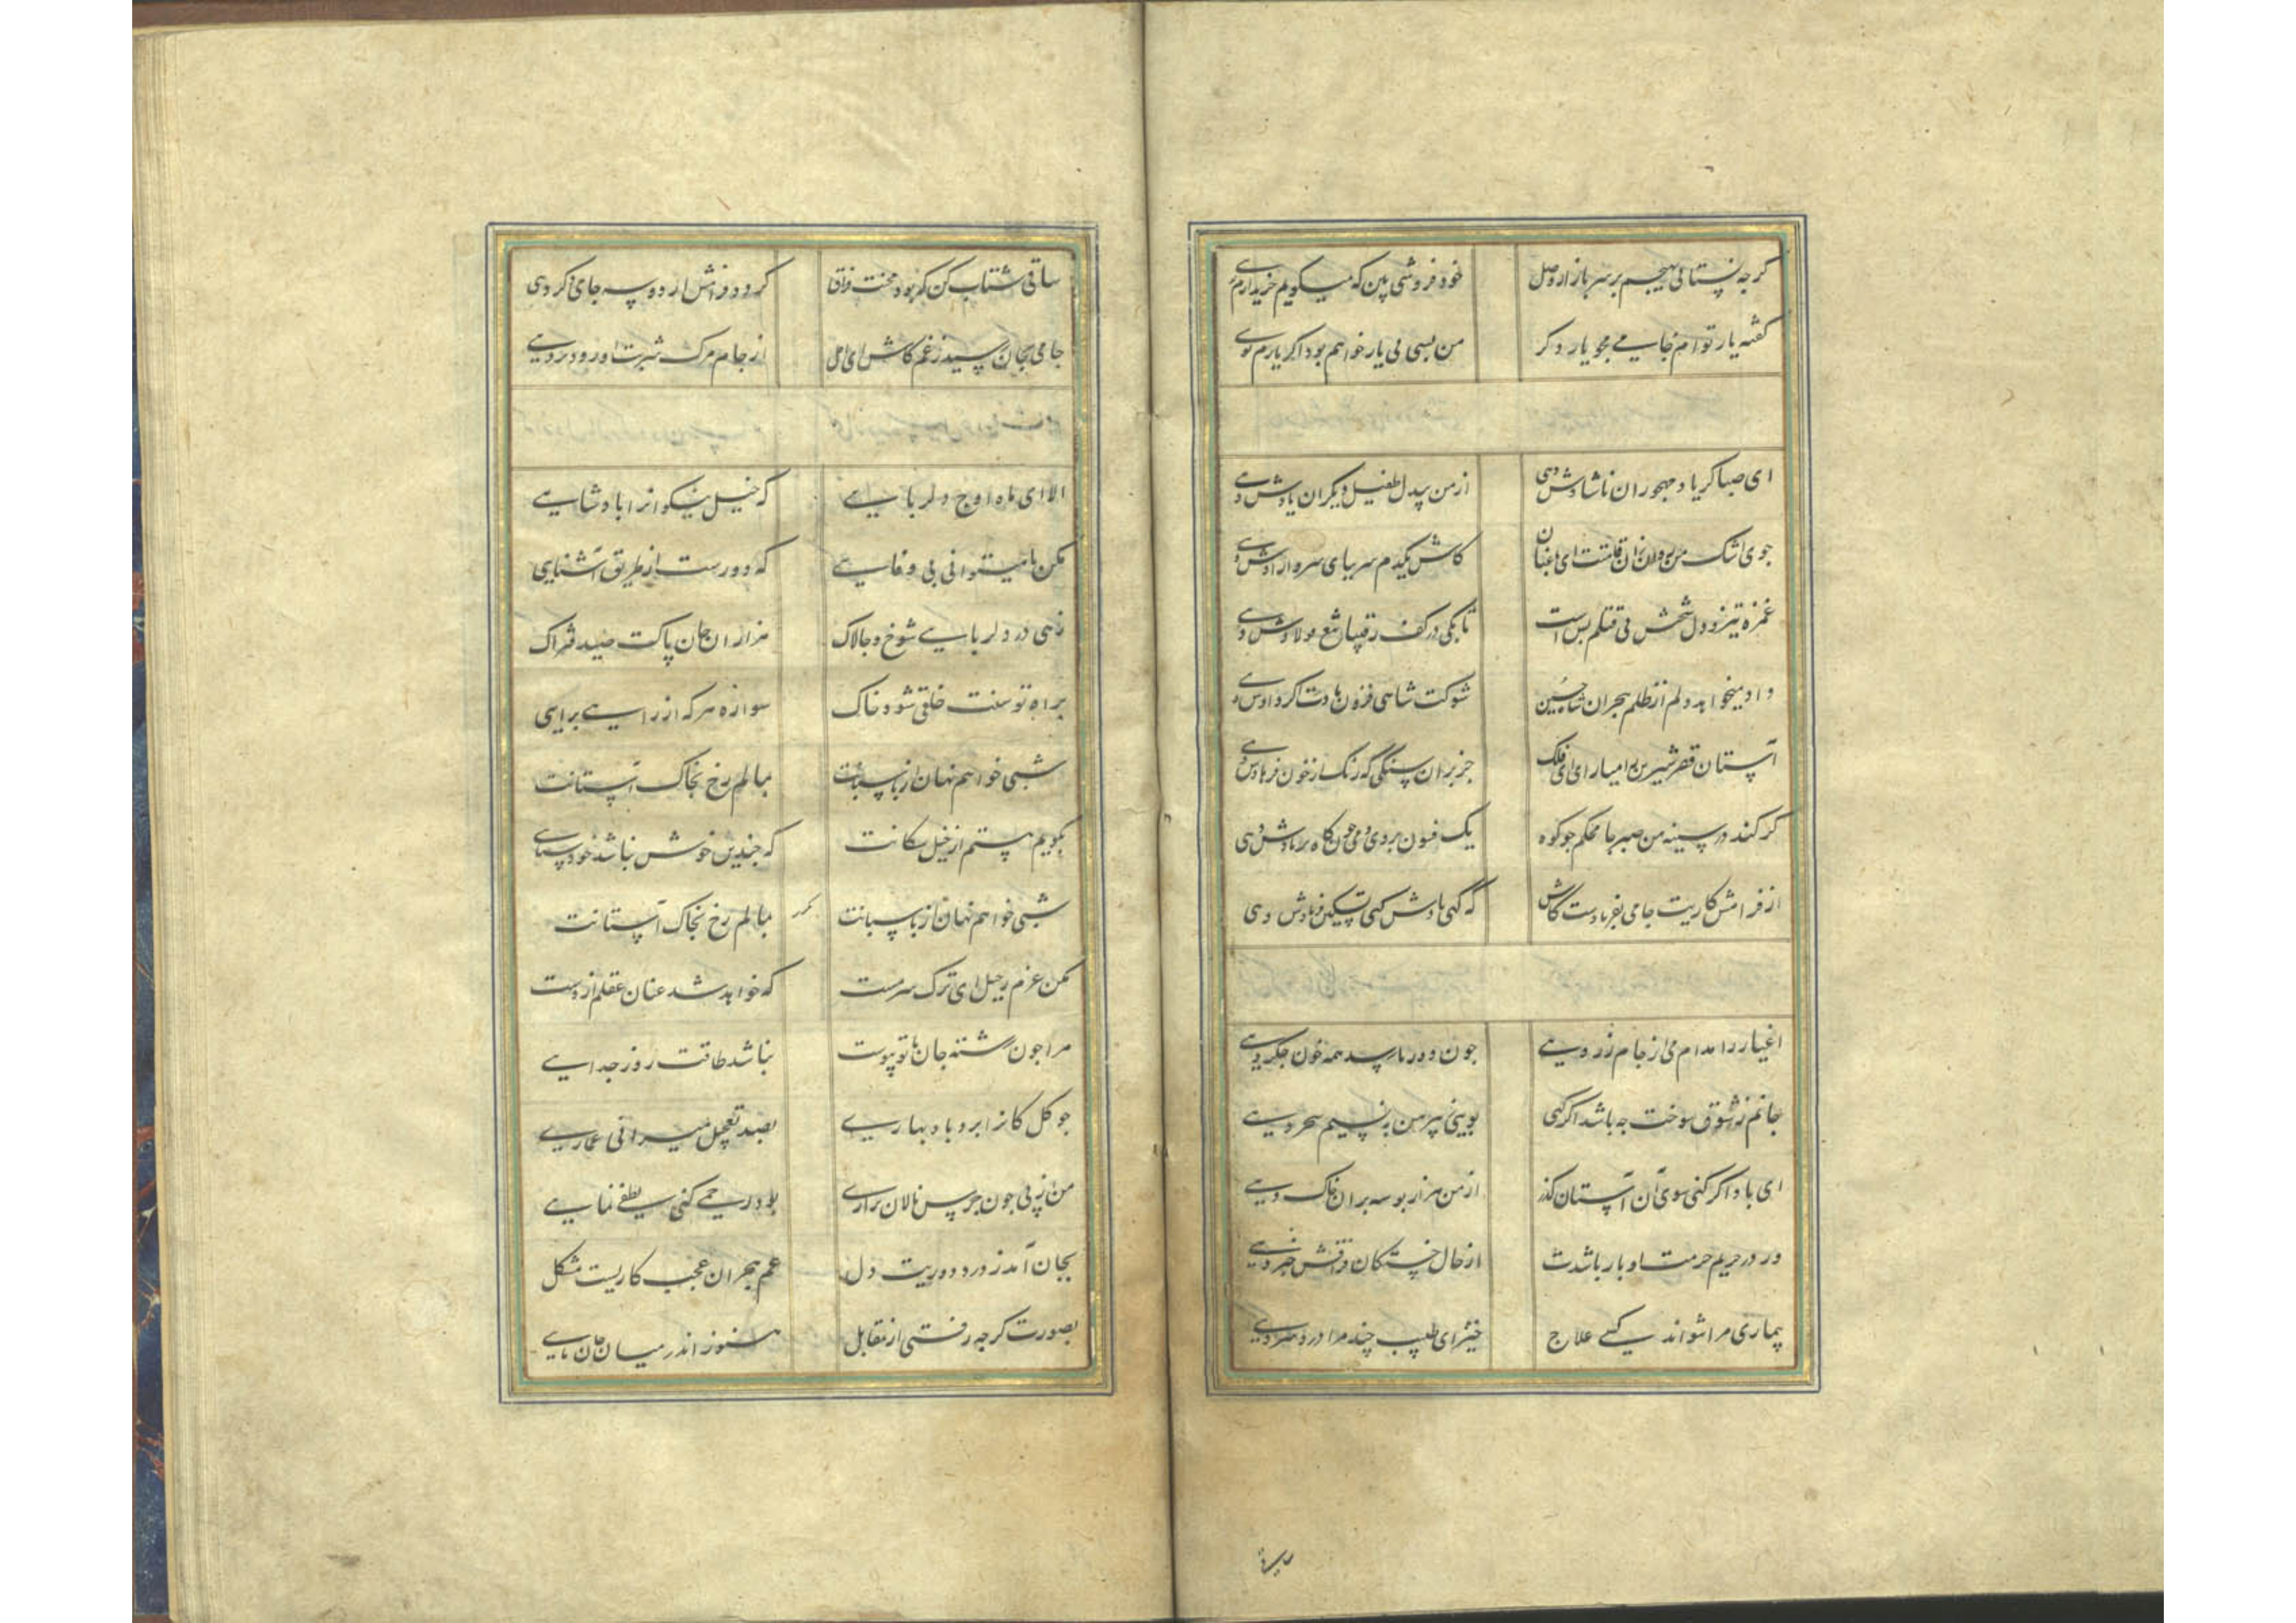 کرچه نستانی بهیچم بر سر بازار وصل خود فروشی بین که میکویم خریدارم توی
کفته یار توام جامی مجو یار دکر من بسی بی یار خواهم بود اکر یارم توی
ای صبا کر یاد مهجوران ناشادش دهی از من بیدل طفیل دیکران یادش دهی
جوی اشک من روان زان قامتست ای باغبان کاش یکدم سر بپای سرو آزادش دهی
غمزه تیز و دل سختش پی قتلم بس است تا بکی در کف رقیبان تیغ فولادش دهی
داد میخواهد دلم از ظلم هجران شاه حسین شوکت شاهی فزون بادت اکر دادش دهی
آستان قصر شیرین را میارای ای فلک جز بدان سنکی که رنک از خون فرهادش دهی
کر کند در سینه من صبر جا محکم جو کوه یک فسون بروی دمی چون کاه بر بادش دهی
از فراموش کاریت جامی بفریادست کاش که کهی بادش کهی تسکین فریادش دهی
اغیار را مدام می از جام زر دهی جون دور ما رسد همه خون جکر دهی
جانم ز شوق سوخت چه باشد اکر کهی بویی ز پیرهن به نسیم سحر دهی
ای باد اکر کنی سوی آن آستان کذر از من هزار بوسه بر آن خاک در دهی
ور در حریم حرمت او بار باشدت از حال خستکان فراقش خبر دهی
بیماری مرا نتواند کسی علاج خیز ای طبیب چند مرا درد سر دهی
ساقی شتاب کن که بود محنت فراق کردد فرامش ار دو سه جام دکر دهی
جامی بجان رسید ز غم کاش ای اجل از جام مرک شربت او زودتر دهی
الا ای ماه اوج دلربایی که خیل نیکوانرا پادشایی
مکن تا میتوانی بی وفایی که دورست از طریق آشنایی
زهی در دلربایی شوخ و چالاک هزاران جان پاکت صید فتراک
براه توسنت خلقی شود خاک سواره هر که از راهی برایی
شبی خواهم نهان از پاسبانت بمالم رخ بخاک آستانت
بکویم هستم از خیل سکانت که چندین خوش نباشد خودستایی
شبی خواهم نهان از پاسبانت مکرر بمالم رخ بخاک آستانت
مکن عزم رحیل ای ترک سرمست که خواهد شد عنان عقلم از دست
مرا جون رشته جان با تو پیوست نباشد طاقت روز جدایی
جو کل کانرا برد باد بهاری بصد تعجیل میرانی عماری
من از پی جون جرس نالان بزاری بود رحمی کنی لطفی نمایی
بجان آمد ز درد دوریت دل غم هجران عجب کاریست مشکل
بصورت کرچه رفتی از مقابل هنوز اندر میان جان مایی